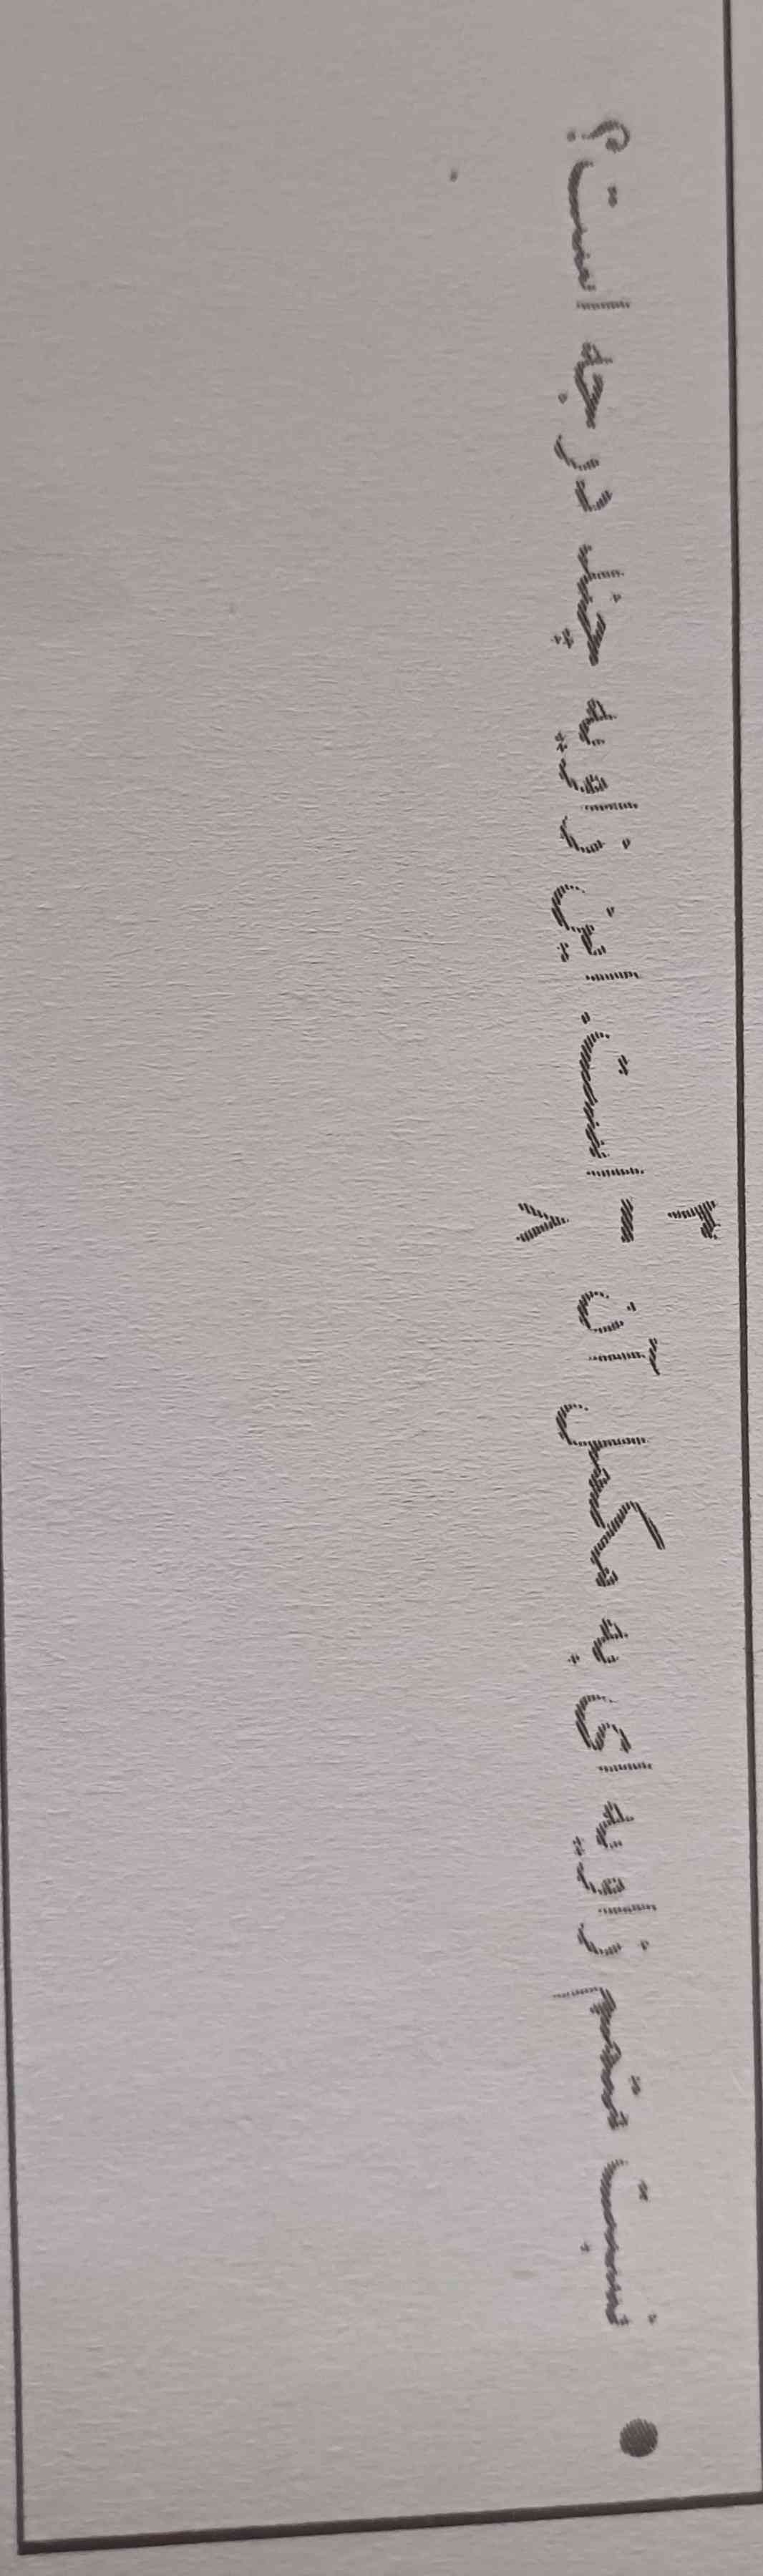 ● نسبت متمم زاویه ای به مکمل آن ۳/۸ است. این زاویه چند درجه است؟